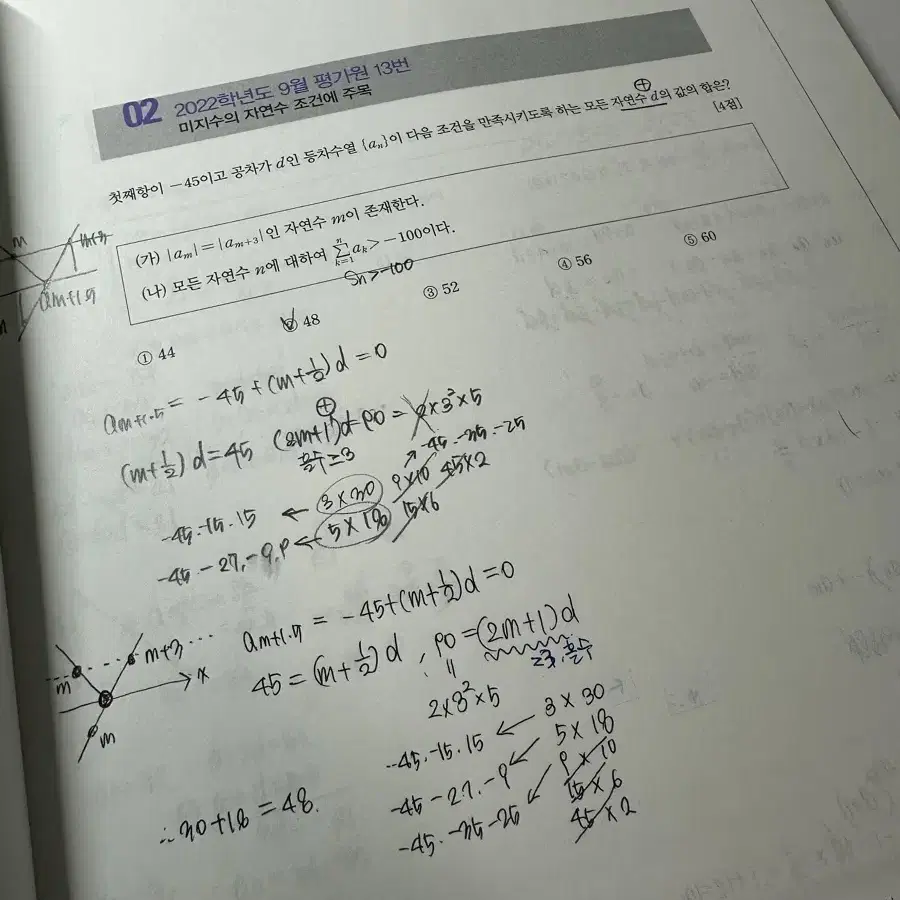 02 2022학년도 9월 평가원 13번
미지수의 자연수 조건에 주목
⊕
첫째항이 -45이고 공차가 d인 등차수열 {aₙ}이 다음 조건을 만족시키도록 하는 모든 자연수 d의 값의 합은?
[4점]
(가) |aₘ|=|aₘ₊₃|인 자연수 m이 존재한다.
(나) 모든 자연수 n에 대하여 ∑ₖ₌₁ⁿ aₖ > -100이다.
Sn > -100
① 44
② 48
③ 52
④ 56
⑤ 60
m
m+3
am+1.5
am+1.5 = -45+(m+½)d=0
(m+½)d=45 (2m+1)d=90=2×3²×5
⊕
홀수≥3
-45.-15.15 ← 3×30 9×10 45×2
↗ -45.-35.-25
-45.-27.-9.9 ← 5×18 15×6
am+1.5 = -45+(m+½)d=0
45=(m+½)d, 90=(2m+1)d
≥3.홀수
"
2×3²×5
m+3 ...
m
x
m
-45.-15.15 ← 3×30
-45-27.-9 ← 5×18
-45.-35-25 ← 9×10
15×6
45×2
∴30+18=48.